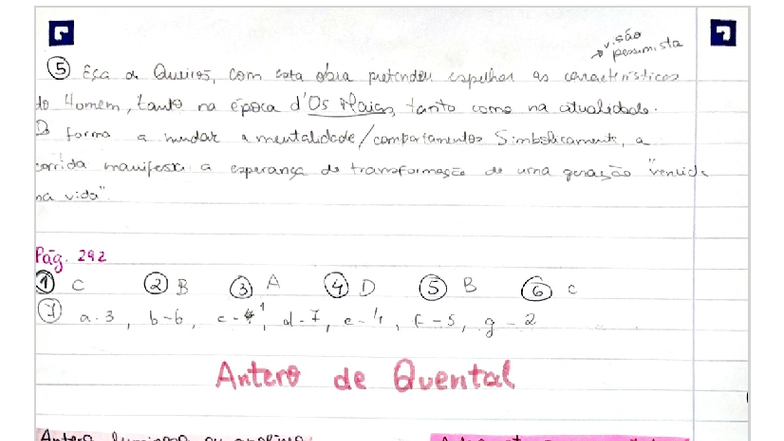 visão
→ pessimista
⑤ Eça de Queirós, com esta obra pretendeu espelhar as características
do Homem, tanto na época d'Os Maias, tanto como na atualidade.
D forma a mudar a mentalidade/comportamentos Simbolicamente, a
corrida manifesta a esperança de transformação de uma geração "vencida
na vida".
Pág. 292
① C ② B ③ A ④ D ⑤ B ⑥ C
⑦ a-3, b-6, c-1, d-7, e-4, f-5, g-2
Antero de Quental
Antero luminoso ou apolíneo: